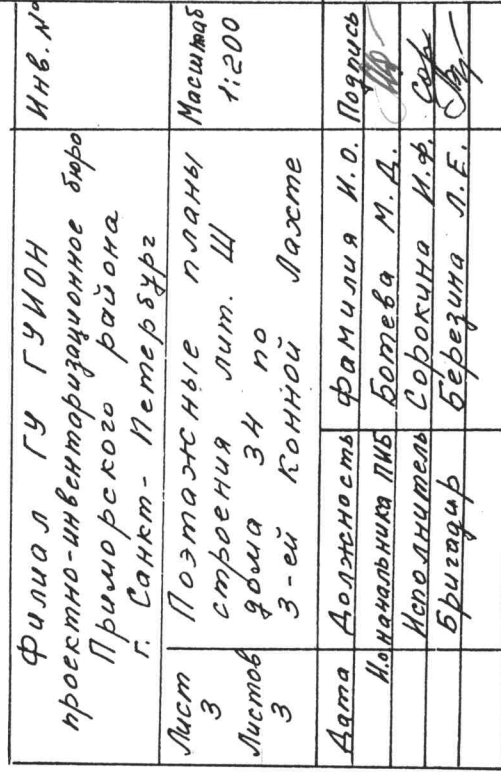 Филиал ГУ ГУИОН
проектно-инвентаризационное бюро
Приморского района
г. Санкт-Петербург
Инв. №
Лист
3
Листов
3
Поэтажные планы
строения лит. Щ
дома 34 по
3-ей Конной Лахте
Масштаб
1:200
Дата Должность Фамилия И.О. Подпись
И.о начальника ПИБ Ботева М.Д.
Исполнитель Сорокина И.Ф. Сор
Бригадир Березина Л.Е.